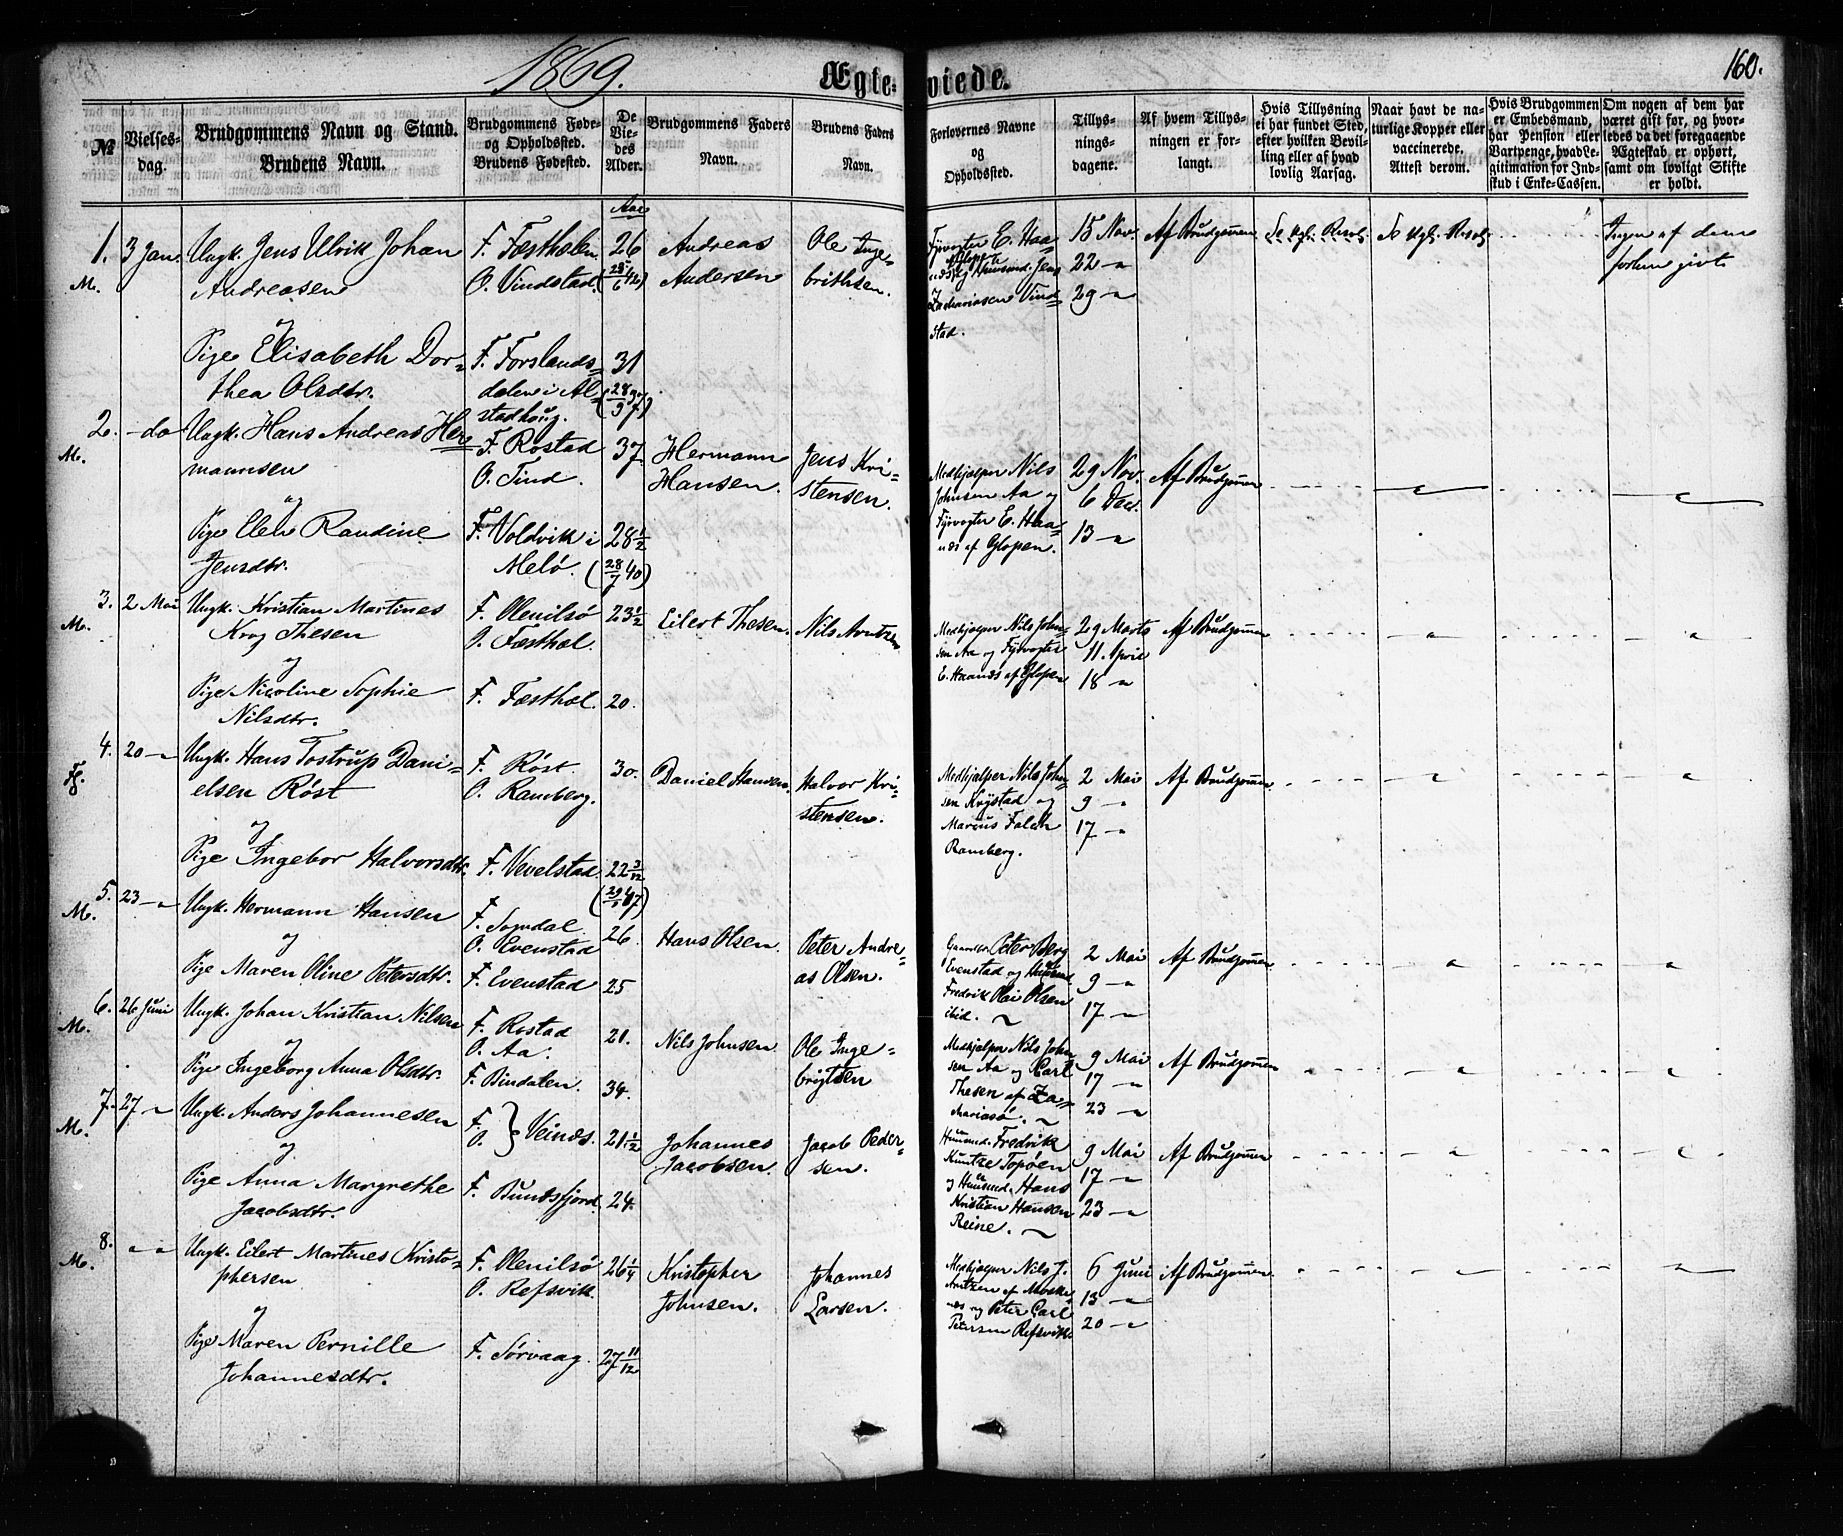 1869.
Ægteviede.
160.
№
Vielsesdag.
Brudgommens Navn og Stand.
Brudens Navn.
Brudgommens Føde-
og Opholdssted.
Brudens Fødested.
De
Vie-
des
Alder.
Brudgommens Faders
Navn.
Brudens Faders
Navn.
Forlovernes Navne
og
Opholdssted.
Tillys-
nings-
dagene.
Af hvem Tillys-
ningen er for-
langt.
Hvis Tillysning
ei har fundet Sted,
efter hvilken Bevil-
ling eller af hvad
lovlig Aarsag.
Naar havt de na-
turlige Kopper eller
vaccinerede.
Attest derom.
Hvis Brudgommen
er Embedsmand,
har Pension eller
Vartpenge, hvad Le-
gitimation for Ind-
skud i Enke-Cassen.
Om nogen af dem har
været gift før, og hvor-
ledes da det foregaaende
Ægteskab er ophørt,
samt om lovligt Skifte
er holdt.
Aar
1. 3 Jan. Ungk. Jens Ulrik Johan
M. Andreasen
F. Festhelen
O. Vindstad.
26
Andreas
Andersen
Ole Inge-
brithsen.
Fyrvogter E. Haa-
næs af Glopen
og Huusmd. Jens
Zachariasen Vind-
stad.
15 Nov.
22 -"
29 -"
Af Brudgommen
Se Kgl. Resol.
Se Kgl. Resol.
Ingen af dem
forhen givt
og
Pige Elisabeth Dor-
thea Olsdtr.
F. Forslands-
dalen i Al-
stadhoug.
31
(28/9 37)
2. - do Ungk. Hans Andreas Her-
M. mannsen
F. Rostad
O. Tind.
37
Hermann
Hansen.
Jens Kri-
stensen.
Medhjelper Nils
Johnsen Aa og
Fyrvogter E. Haa-
næs af Glopen.
29 Nov.
6 Dec.
13 -"
Af Brudgommen
og
Pige Elen Randine
Jensdtr.
F. Voldvik i
Melø.
28 1/2
(28/7 40)
3. 2 Mai Ungk. Kristian Martines
M. Krog Thesen
F. Olenilsø
O. Festhel.
23 1/2
Eilert Thesen.
Nils Arntzen
Medhjelper Nils John-
sen Aa og Fyrvogter
E. Haanæs af Glopen
29 Marts
11. April
18 -"
Af Brudgommen
og
Pige Nicoline Sophie
Nilsdtr.
F. Festhel.
20.
4. 20 -" Ungk. Hans Tostrup Dani-
Fl. elsen Røst
F. Røst.
O. Ramberg.
30.
Daniel Hansen.
Halvor Kri-
stensen.
Medhjelper Nils John-
sen Krystad og
Marcus Falch
Ramberg.
2 Mai
9 -"
17 -"
Af Brudgommen
og
Pige Ingebor Halvorsdtr.
F. Vevelstad.
22 3/12
5. 23 -" Ungk. Hermann Hansen
M.
F. Sogndal.
O. Evenstad
26.
Hans Olsen.
Peter Andre-
as Olsen.
Gaardbr. Peter Berg
Evenstad og Huusmd.
Fredrik Olai Olsen
ibid.
2 Mai
9 -"
17 -"
Af Brudgommen
og
Pige Maren Oline Petersdtr.
F. Evenstad
25
6. 26 Juni Ungk. Johan Kristian Nilsen
M.
F. Rostad
O. Aa.
21.
Nils Johnsen
Ole Inge-
brigtsen
Medhjelper Nils John-
sen Aa og Carl
Thesen af Za-
khariasø.
9 Mai
17 -"
23 -"
Af Brudgommen
og
Pige Ingeborg Anna Olsdtr.
F. Bindalen.
34.
7. 27 -" Ungk. Anders Johannesen
M.
F.
O. } Veinæs.
21 1/2
Johannes
Jacobsen.
Jacob Peder-
sen.
Huusmd. Fredrik
Kuntze Topøen
og Huusmd. Hans
Kristian Hansen
Reine.
9 Mai
17 -"
23 -"
Af Brudgommen
og
Pige Anna Margrethe
Jacobsdtr.
F. Bunesfjord.
24.
8. -" -" Ungk. Eilert Martines Kristo-
M. phersen
F. Olenilsø
O. Refsvik.
26 1/4
Kristopher
Johnsen.
Johannes
Larsen.
Medhjelper Nils J.
Arntzen af Moske-
næs og Peter Carl
Petersen Refsvik
6 Juni
13 -"
20 -"
Af Brudgommen
og
Pige Maren Pernille
Johannesdtr.
F. Sørvaag.
27 11/12